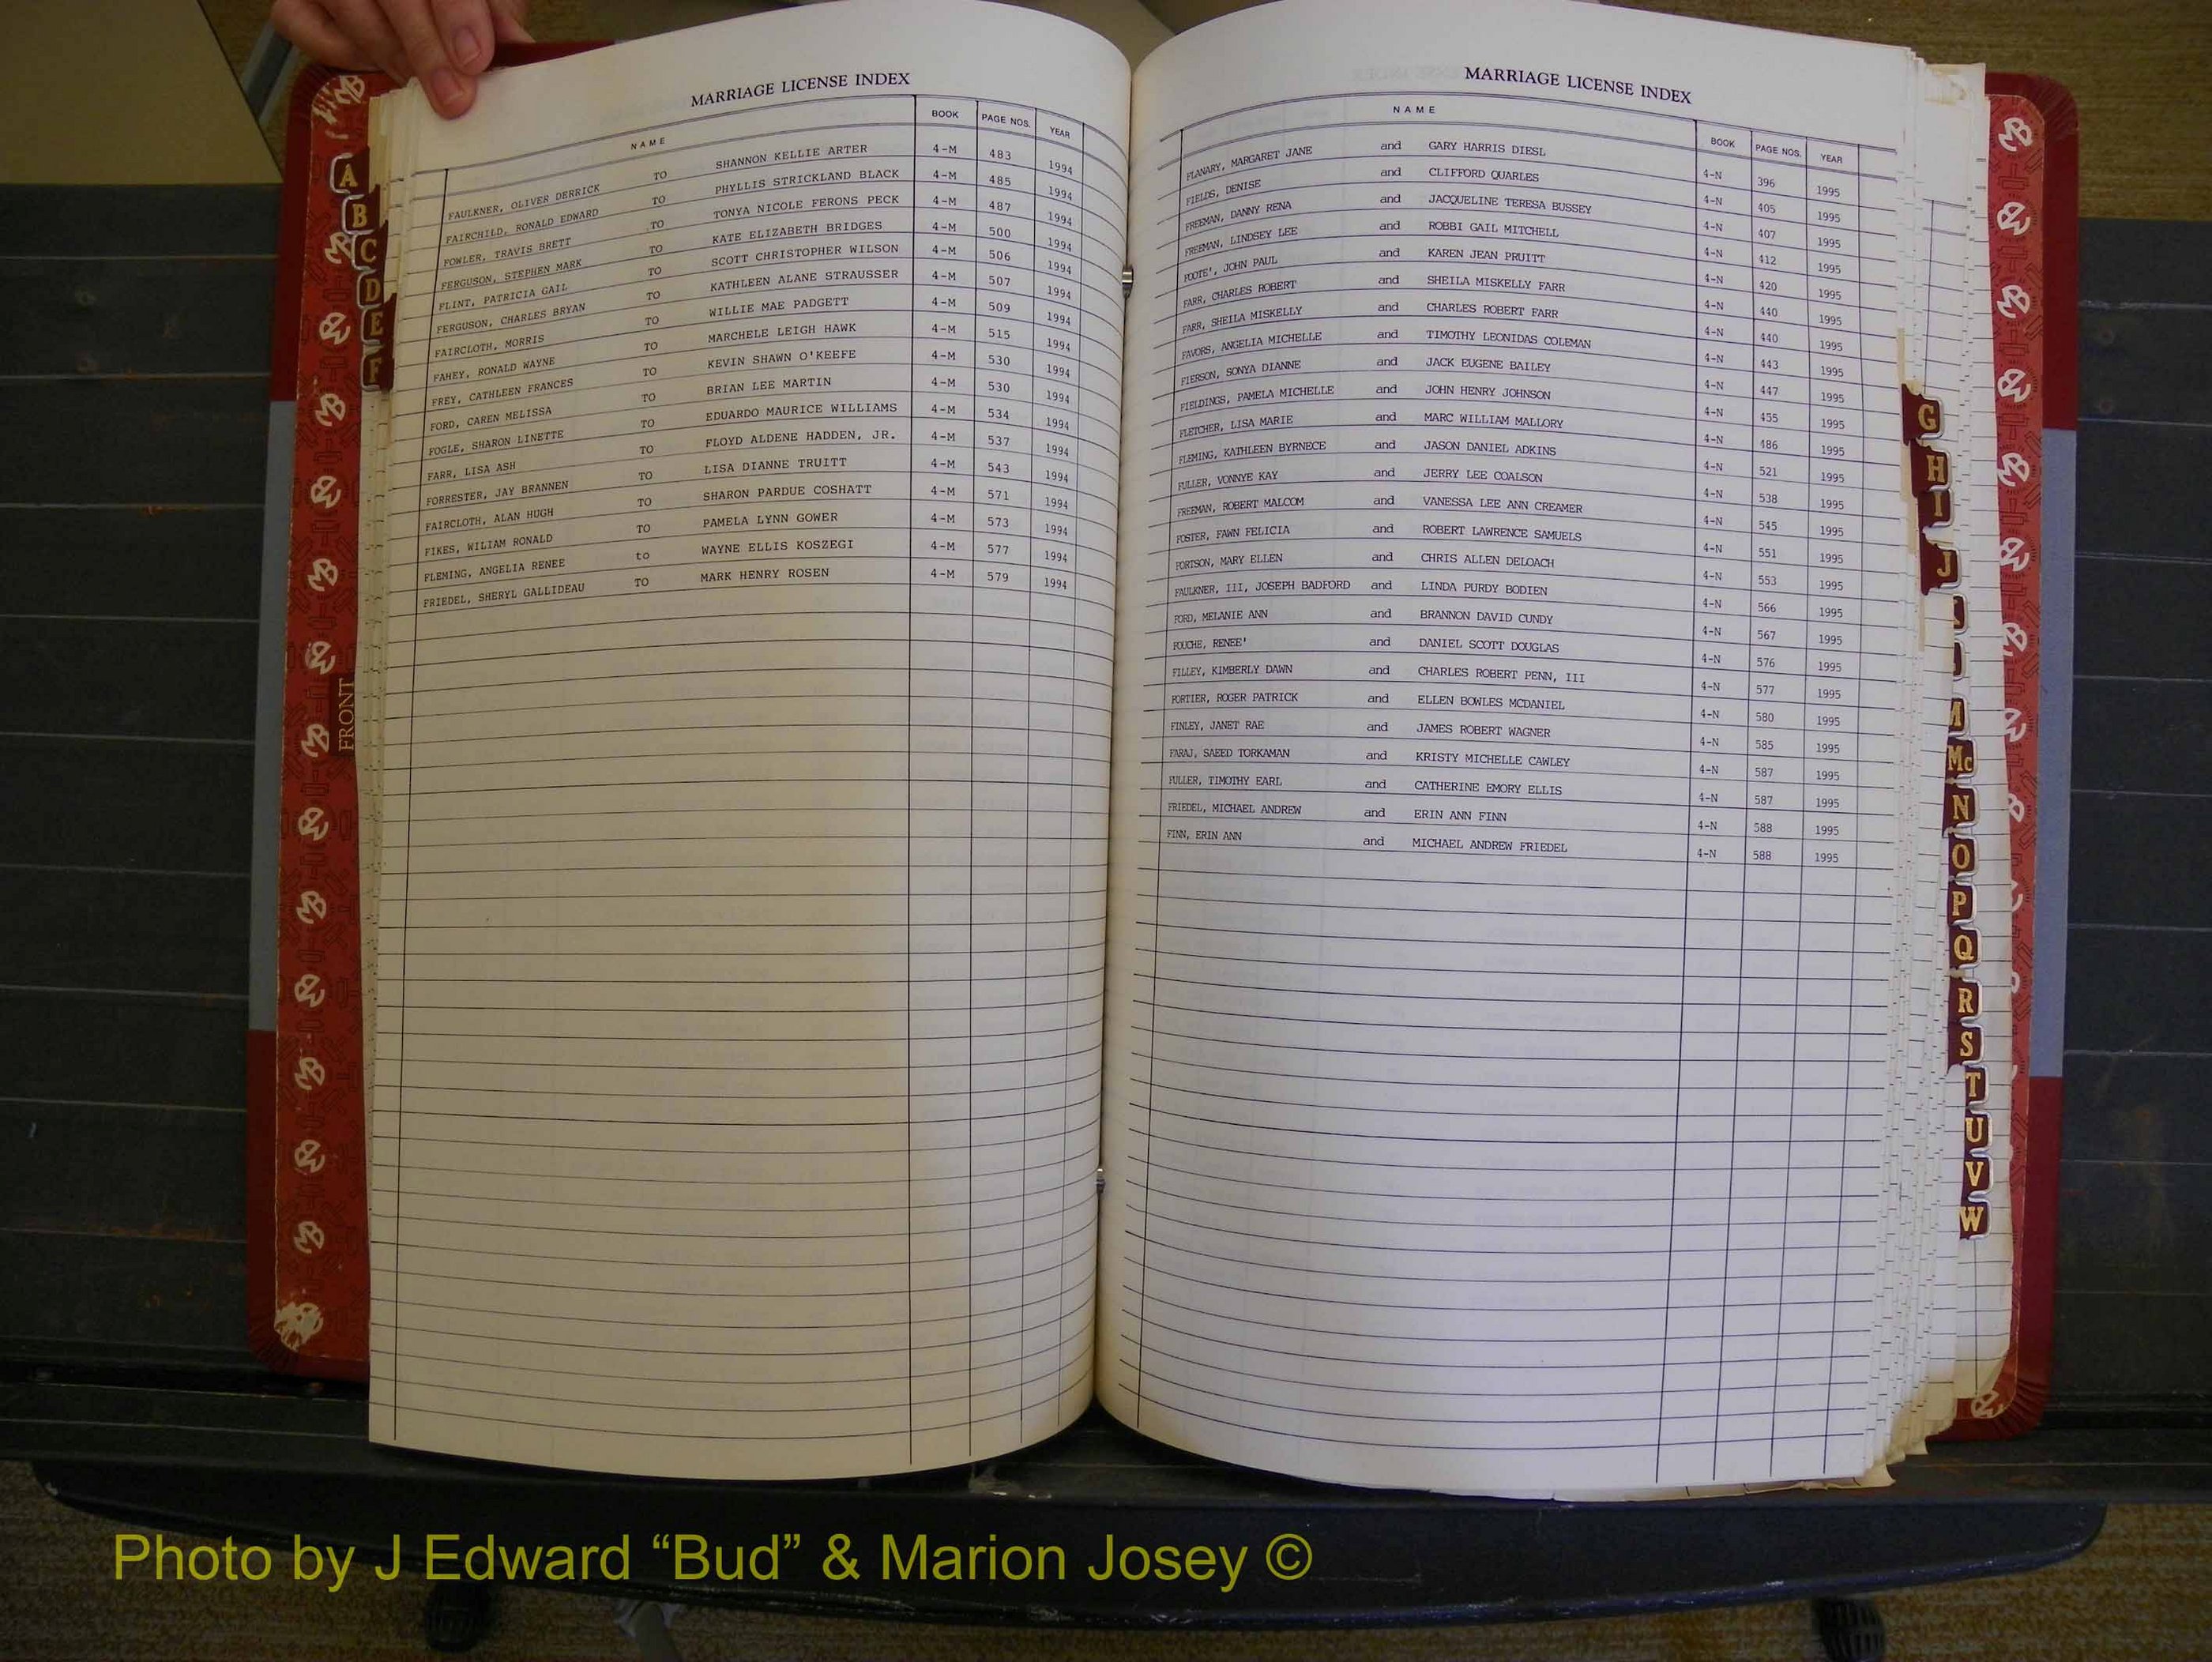 MARRIAGE LICENSE INDEX
NAME BOOK PAGE NOS. YEAR
FAULKNER, OLIVER DERRICK TO SHANNON KELLIE ARTER 4-M 483 1994
FAIRCHILD, RONALD EDWARD TO PHYLLIS STRICKLAND BLACK 4-M 485 1994
FOWLER, TRAVIS BRETT TO TONYA NICOLE FERONS PECK 4-M 487 1994
FERGUSON, STEPHEN MARK TO KATE ELIZABETH BRIDGES 4-M 500 1994
FLINT, PATRICIA GAIL TO SCOTT CHRISTOPHER WILSON 4-M 506 1994
FERGUSON, CHARLES BRYAN TO KATHLEEN ALANE STRAUSSER 4-M 507 1994
FAIRCLOTH, MORRIS TO WILLIE MAE PADGETT 4-M 509 1994
FAHEY, RONALD WAYNE TO MARCHELE LEIGH HAWK 4-M 515 1994
FREY, CATHLEEN FRANCES TO KEVIN SHAWN O'KEEFE 4-M 530 1994
FORD, CAREN MELISSA TO BRIAN LEE MARTIN 4-M 530 1994
FOGLE, SHARON LINETTE TO EDUARDO MAURICE WILLIAMS 4-M 534 1994
FARR, LISA ASH TO FLOYD ALDENE HADDEN, JR. 4-M 537 1994
FORRESTER, JAY BRANNEN TO LISA DIANNE TRUITT 4-M 543 1994
FAIRCLOTH, ALAN HUGH TO SHARON PARDUE COSHATT 4-M 571 1994
FIKES, WILIAM RONALD TO PAMELA LYNN GOWER 4-M 573 1994
FLEMING, ANGELIA RENEE to WAYNE ELLIS KOSZEGI 4-M 577 1994
FRIEDEL, SHERYL GALLIDEAU TO MARK HENRY ROSEN 4-M 579 1994
A
B
C
D
E
F
FRONT
MARRIAGE LICENSE INDEX
NAME BOOK PAGE NOS. YEAR
FLANARY, MARGARET JANE and GARY HARRIS DIESL 4-N 396 1995
FIELDS, DENISE and CLIFFORD QUARLES 4-N 405 1995
FREEMAN, DANNY RENA and JACQUELINE TERESA BUSSEY 4-N 407 1995
FREEMAN, LINDSEY LEE and ROBBI GAIL MITCHELL 4-N 412 1995
FOOTE', JOHN PAUL and KAREN JEAN PRUITT 4-N 420 1995
FARR, CHARLES ROBERT and SHEILA MISKELLY FARR 4-N 440 1995
FARR, SHEILA MISKELLY and CHARLES ROBERT FARR 4-N 440 1995
FAVORS, ANGELIA MICHELLE and TIMOTHY LEONIDAS COLEMAN 4-N 443 1995
FIERSON, SONYA DIANNE and JACK EUGENE BAILEY 4-N 447 1995
FIELDINGS, PAMELA MICHELLE and JOHN HENRY JOHNSON 4-N 455 1995
FLETCHER, LISA MARIE and MARC WILLIAM MALLORY 4-N 486 1995
FLEMING, KATHLEEN BYRNECE and JASON DANIEL ADKINS 4-N 521 1995
FULLER, VONNYE KAY and JERRY LEE COALSON 4-N 538 1995
FREEMAN, ROBERT MALCOM and VANESSA LEE ANN CREAMER 4-N 545 1995
FOSTER, FAWN FELICIA and ROBERT LAWRENCE SAMUELS 4-N 551 1995
FORTSON, MARY ELLEN and CHRIS ALLEN DELOACH 4-N 553 1995
FAULKNER, III, JOSEPH BADFORD and LINDA PURDY BODIEN 4-N 566 1995
FORD, MELANIE ANN and BRANNON DAVID CUNDY 4-N 567 1995
FOUCHE, RENEE' and DANIEL SCOTT DOUGLAS 4-N 576 1995
FILLEY, KIMBERLY DAWN and CHARLES ROBERT PENN, III 4-N 577 1995
FORTIER, ROGER PATRICK and ELLEN BOWLES MCDANIEL 4-N 580 1995
FINLEY, JANET RAE and JAMES ROBERT WAGNER 4-N 585 1995
FARAJ, SAEED TORKAMAN and KRISTY MICHELLE CAWLEY 4-N 587 1995
FULLER, TIMOTHY EARL and CATHERINE EMORY ELLIS 4-N 587 1995
FRIEDEL, MICHAEL ANDREW and ERIN ANN FINN 4-N 588 1995
FINN, ERIN ANN and MICHAEL ANDREW FRIEDEL 4-N 588 1995
G
H
I
J
M
Mc
N
O
P
Q
R
S
T
U
V
W
Photo by J Edward “Bud” & Marion Josey ©